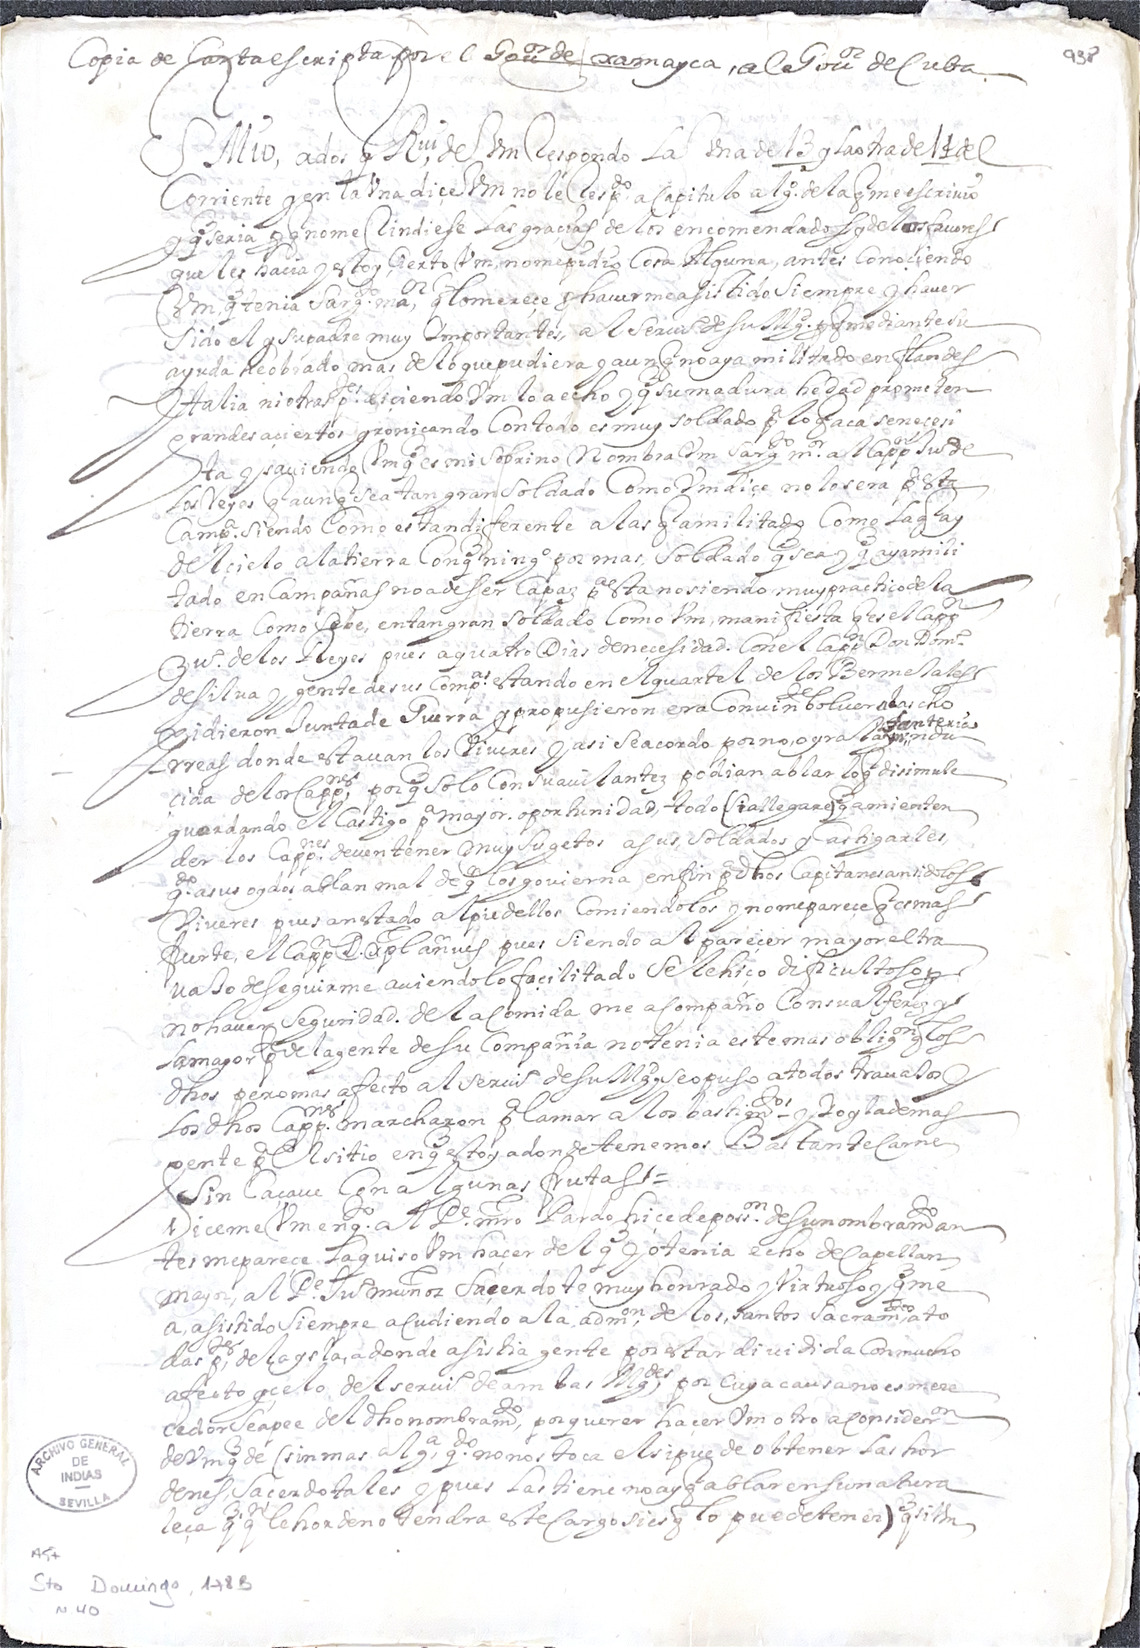 938
Copia de Carta escripta por el Gouor de xamayca, al Gouor de Cuba
Sr Mio, a dos q Rui de Vm Respondo La Vna de 13 y La otra de 14 del
Corriente y en la Vna dice Vm no le Respdo a Capitulo algo de la q me escriuio
y q seria pq no me Rindiese Las gracias de los encomendados y de los fauores
que les hacia y estoy Cierto Vm, no me pidio Cosa Alguna, antes Conociendo
Vm q tenia Sargto mor, q lo merece pr hauerme asistido Siempre y hauer
sido el y su padre muy Ymportantes, al Seruio de su Mgd. pq mediante su
ayuda he obrado mas de lo que pudiera y aunq no aya militado en flandes
Ytalia ni otras ptes diciendo Vm lo a echo y q su madura hedad prometen
grandes aciertos y ronicando Con todo es muy soldado pa lo q aca se necesi
ta y sauiendo Vm q es mi Sobrino Nombra Vm Sargto mor al Cappn Juo de
Los Reyes q aunq sea tan gran Soldado Como Vm dice no lo sera pa esta
Campa. siendo Como es tan diferente a las q a militado Como La q ay
del cielo a la tierra Conq ningo por mas, soldado q sea y q aya mili
tado en Campañas no a de ser Capaz pa esta no siendo muy practico de la
tierra Como se ve, en tan gran soldado Como Vm, manifiesta q es el Cappn
Juo. de los Reyes pues a quatro Dias de necesidad. Con el Cappn Don Domo
de silua y gente de sus Compas estando en el quartel de los Bermejales
pidieron Junta de Guerra y propusieron era Conuinte boluer a las cho
rreas donde estauan los Viueres y asi se acordo por no, ograr la Ynfanteria
cida de los Cappnes, porq solo Con su auilantez podian ablar lo q disimule
guardando el Castigo pa mayor oportunidad, todo
der los Cappnes deuen tener muy sugetos a sus, soldados y Castigarles,
qdo a sus ogdos ablan mal de q los gouierna en fin pa dhos Capitanes an sido los
Viueres pues an estado al pie dellos Comiendolos y no me parece q es mas
fuerte, el Cappn D. pues siendo al parecer mayor el tra
uajo de seguirme auiendolo facilitado Se le hiço dificultoso, pr
no hauer Seguridad. de la Comida me acompaño Con su alferez y
La mayor pte de la gente de su Compañia no tenia este mas obligon q los
dhos pero mas afecto al seruio de su Mgd y se opuso a todos trauajos y
Los dhos Cappnes marcharon pa la mar a los bastimtos y yo y la demas
gente pa el sitio en q estoy adonde tenemos Bastante Carne
Sin Caçaue Con algunas frutas =
Diceme Vm en qto. al Pe. mro Pardo hiçe deposon de su nombramto an
tes me parece La quiso Vm hacer del q yo tenia echo de Capellan
mayor, al Pe. Juo muñoz Sacerdote muy honrado y Virtuoso y q me
a, asistido Siempre acudiendo a la admon, de los, santos Sacramtos, a to
das ptes, de la ysla, adonde asistia gente por estar diuidida Con mucho
afecto y celo, del seruio de ambas Mgdes, por Cuya causa no es mere
cedor Se apee del dho nombramto, por querer hacer Vm otro a Consideron
de Vm q de (sin mas alga, qdo no nos toca el si puede obtener Las hor
denes Sacerdotales y pues Las tiene no ay q ablar en su natura
leça q qn le hordeno tendra este Cargo si es q lo puede tener) q si Vm
ARCHIVO GENERAL DE INDIAS SEVILLA
Sto Domingo, 178B
N 40